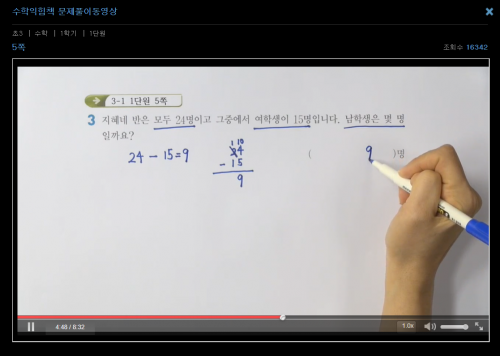 수학익힘책 문제풀이동영상
초3 | 수학 | 1학기 | 1단원
5쪽
조회수 16342
3-1 1단원 5쪽
3 지혜네 반은 모두 24명이고 그중에서 여학생이 15명입니다. 남학생은 몇 명
일까요?
24 - 15 = 9
1 10
24
- 15
9
( 9 )명
4:46 / 8:32
1.0x